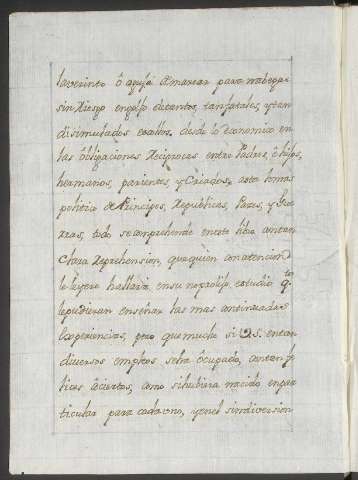 laverinto ô aguja de marear para nabegar
sin Riesgo engolfo detantos, tanfatales, ytan
disimulados escollos, desde lo economico en
las ôbligaciones Reciprocas entre Padres, ê hijos,
hermanos, parientes, y Criados, asta lo mas
politico de Principes, Republicas, Pazes, y Gue
rras, todo secomprehende eneste libro contan
Clara Reprehension, que quien con atencion
le leyere hallara, en su no prolijo estudio q.to
lepudieran enseñar las mas continuadas
Experiencias, pero que mucho si V.S. entan
diversos empleos seha ôcupado, contan fe
lices aciertos, como sihubiera nacido enpar
ticular para cadauno, yenel sindiversion